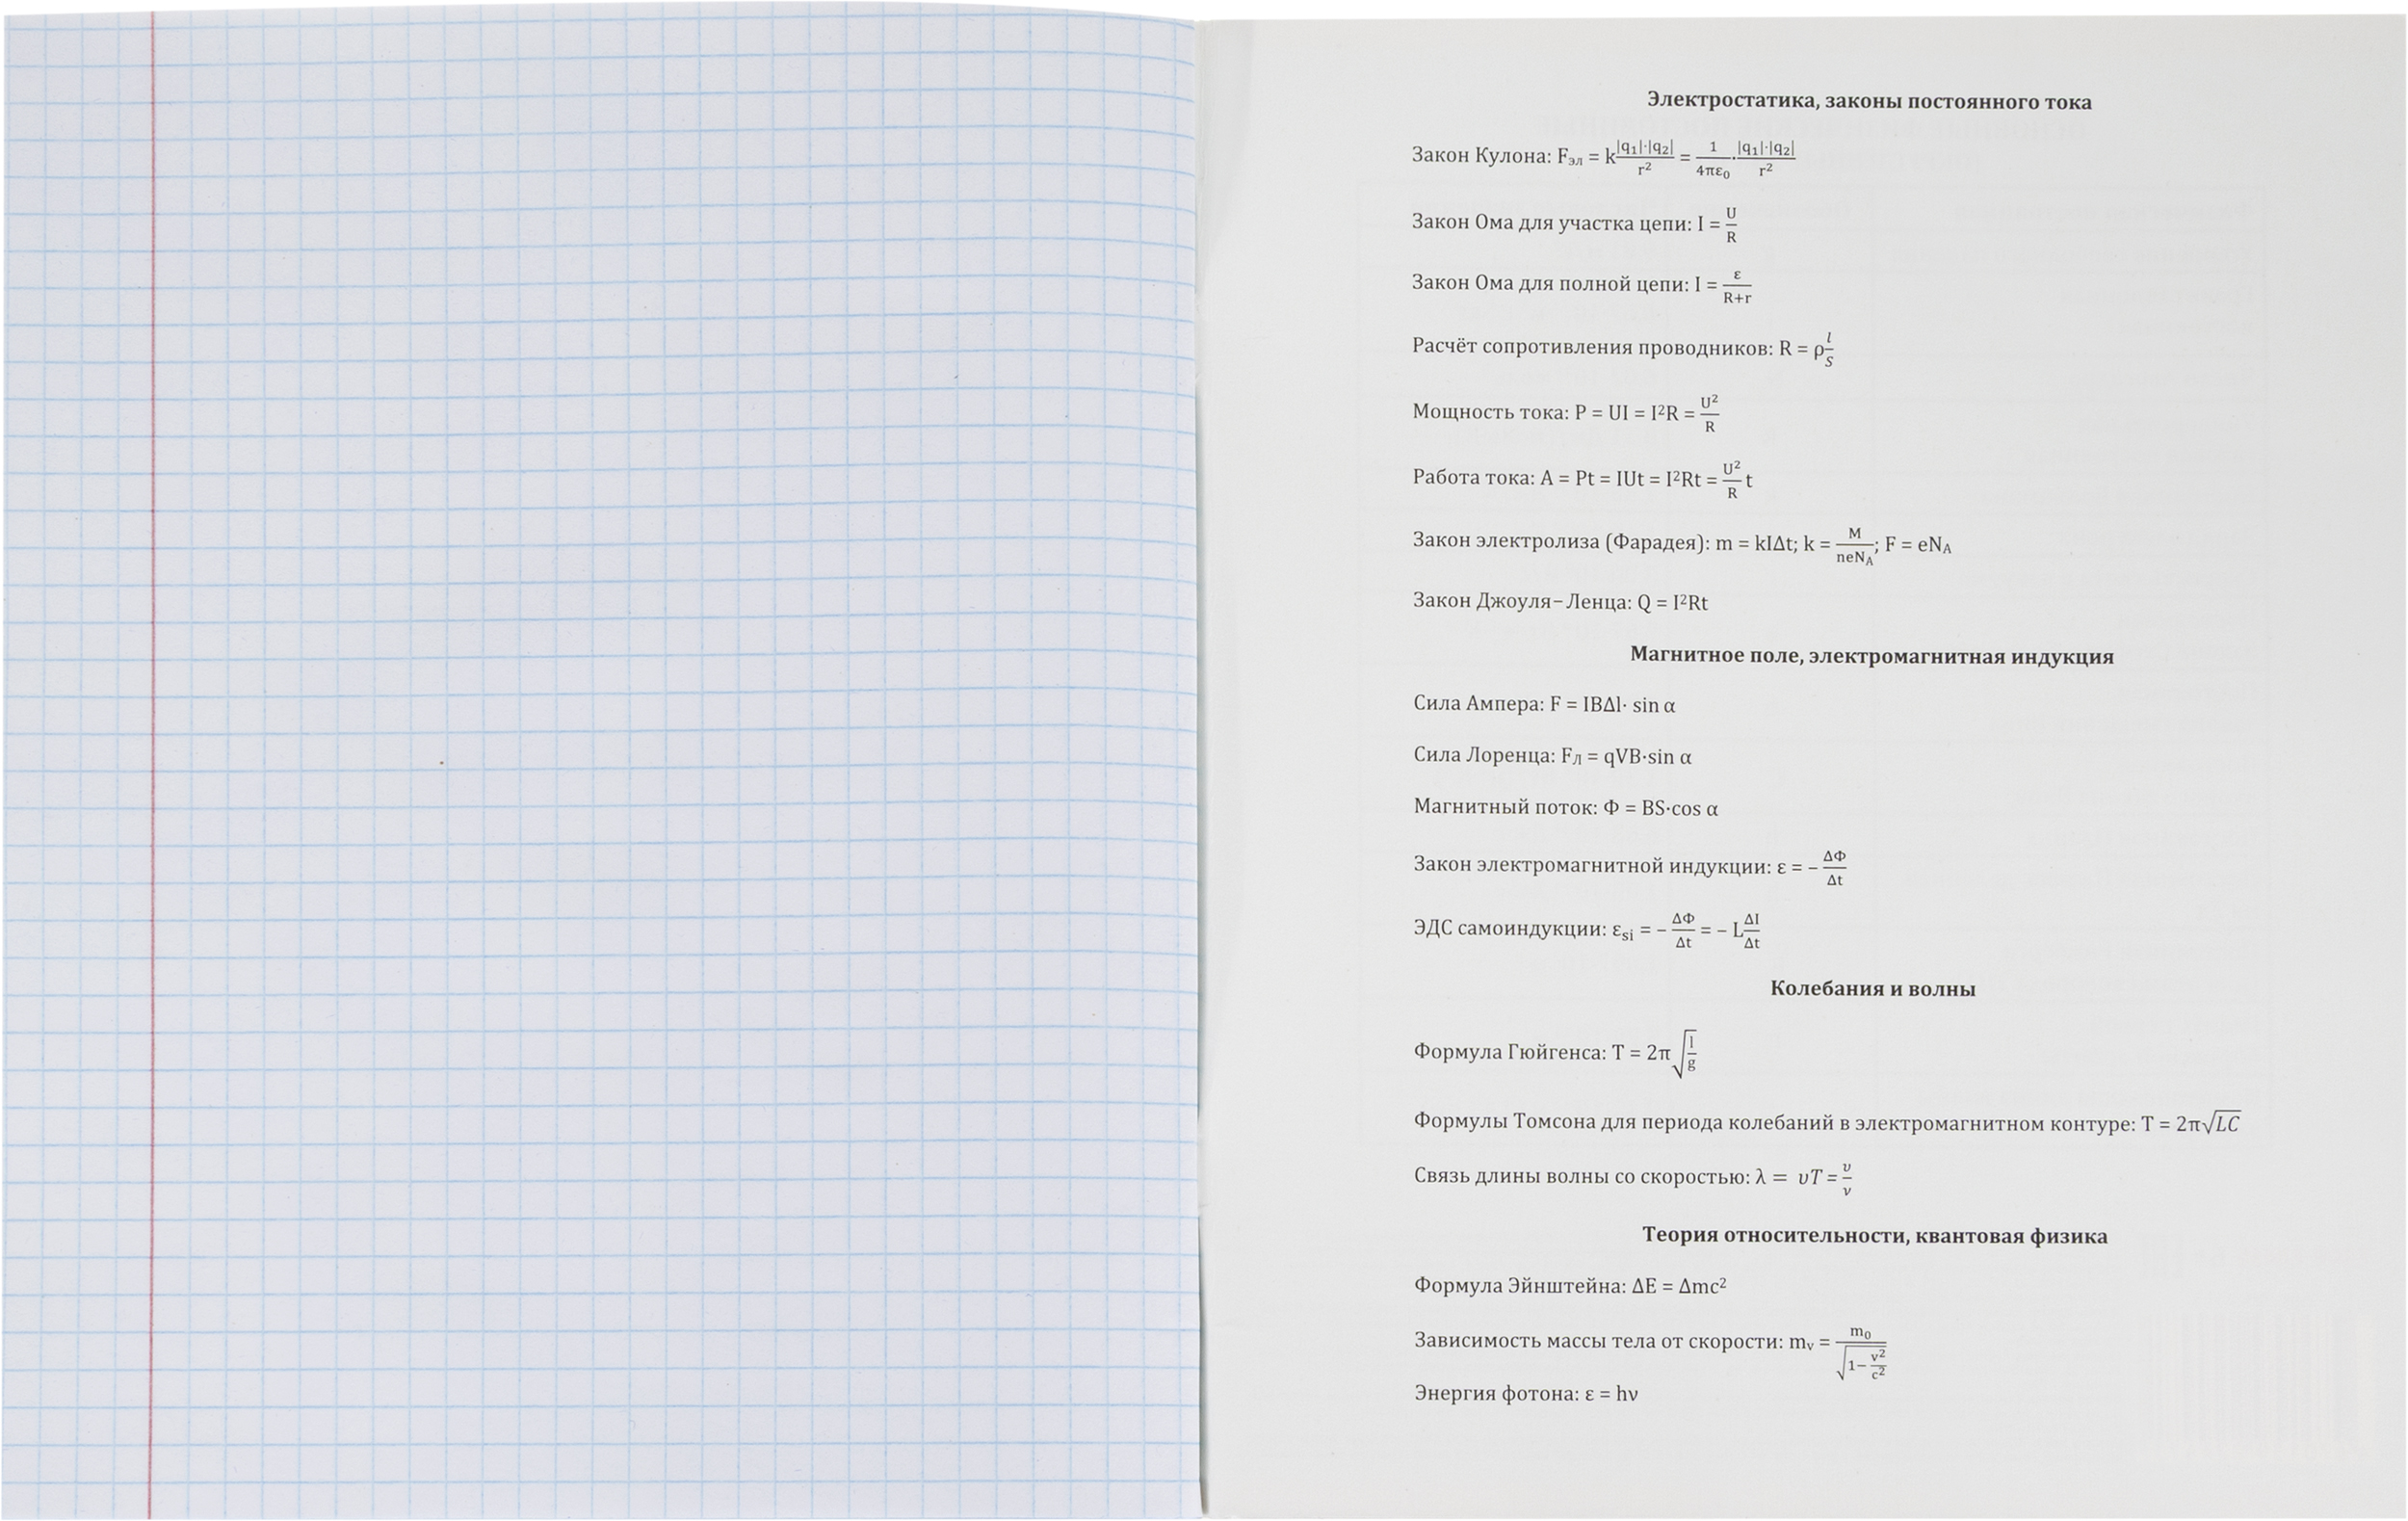 Электростатика, законы постоянного тока
Закон Кулона: Fэл = k|q₁|·|q₂|/r² = 1/4πε₀·|q₁|·|q₂|/r²
Закон Ома для участка цепи: I = U/R
Закон Ома для полной цепи: I = ε/R+r
Расчёт сопротивления проводников: R = ρl/S
Мощность тока: P = UI = I²R = U²/R
Работа тока: A = Pt = IUt = I²Rt = U²/R t
Закон электролиза (Фарадея): m = kIΔt; k = M/neN_A; F = eN_A
Закон Джоуля–Ленца: Q = I²Rt
Магнитное поле, электромагнитная индукция
Сила Ампера: F = IBΔl· sin α
Сила Лоренца: Fл = qVB·sin α
Магнитный поток: Φ = BS·cos α
Закон электромагнитной индукции: ε = – ΔΦ/Δt
ЭДС самоиндукции: ε_si = – ΔΦ/Δt = – LΔI/Δt
Колебания и волны
Формула Гюйгенса: T = 2π √(l/g)
Формулы Томсона для периода колебаний в электромагнитном контуре: T = 2π√LC
Связь длины волны со скоростью: λ = υT = υ/ν
Теория относительности, квантовая физика
Формула Эйнштейна: ΔE = Δmc²
Зависимость массы тела от скорости: mᵥ = m₀/√(1–v²/c²)
Энергия фотона: ε = hν